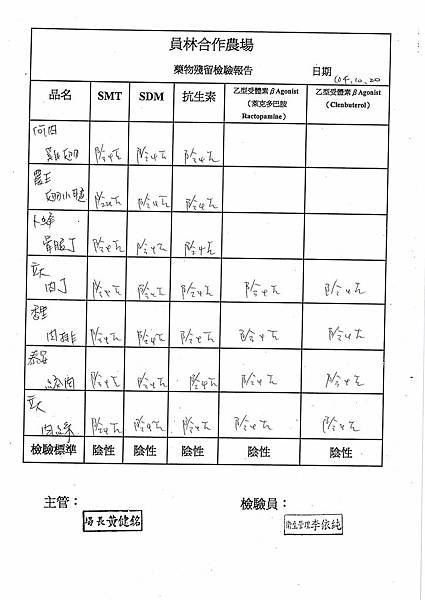 員林合作農場
藥物殘留檢驗報告 日期 104.10.20
品名 SMT SDM 抗生素 乙型受體素βAgonist (萊克多巴胺 Ractopamine) 乙型受體素βAgonist (Clenbuterol)
雞翅 陰性 陰性 陰性
農王
翅小腿 陰性 陰性 陰性
卜蜂
骨腿丁 陰性 陰性 陰性
肉丁 陰性 陰性 陰性 陰性 陰性
香里
肉排 陰性 陰性 陰性 陰性 陰性
泰安
絞肉 陰性 陰性 陰性 陰性 陰性
肉絲 陰性 陰性 陰性 陰性 陰性
檢驗標準 陰性 陰性 陰性 陰性 陰性
主管： 檢驗員：
場長黃健銘 衛生管理李依純